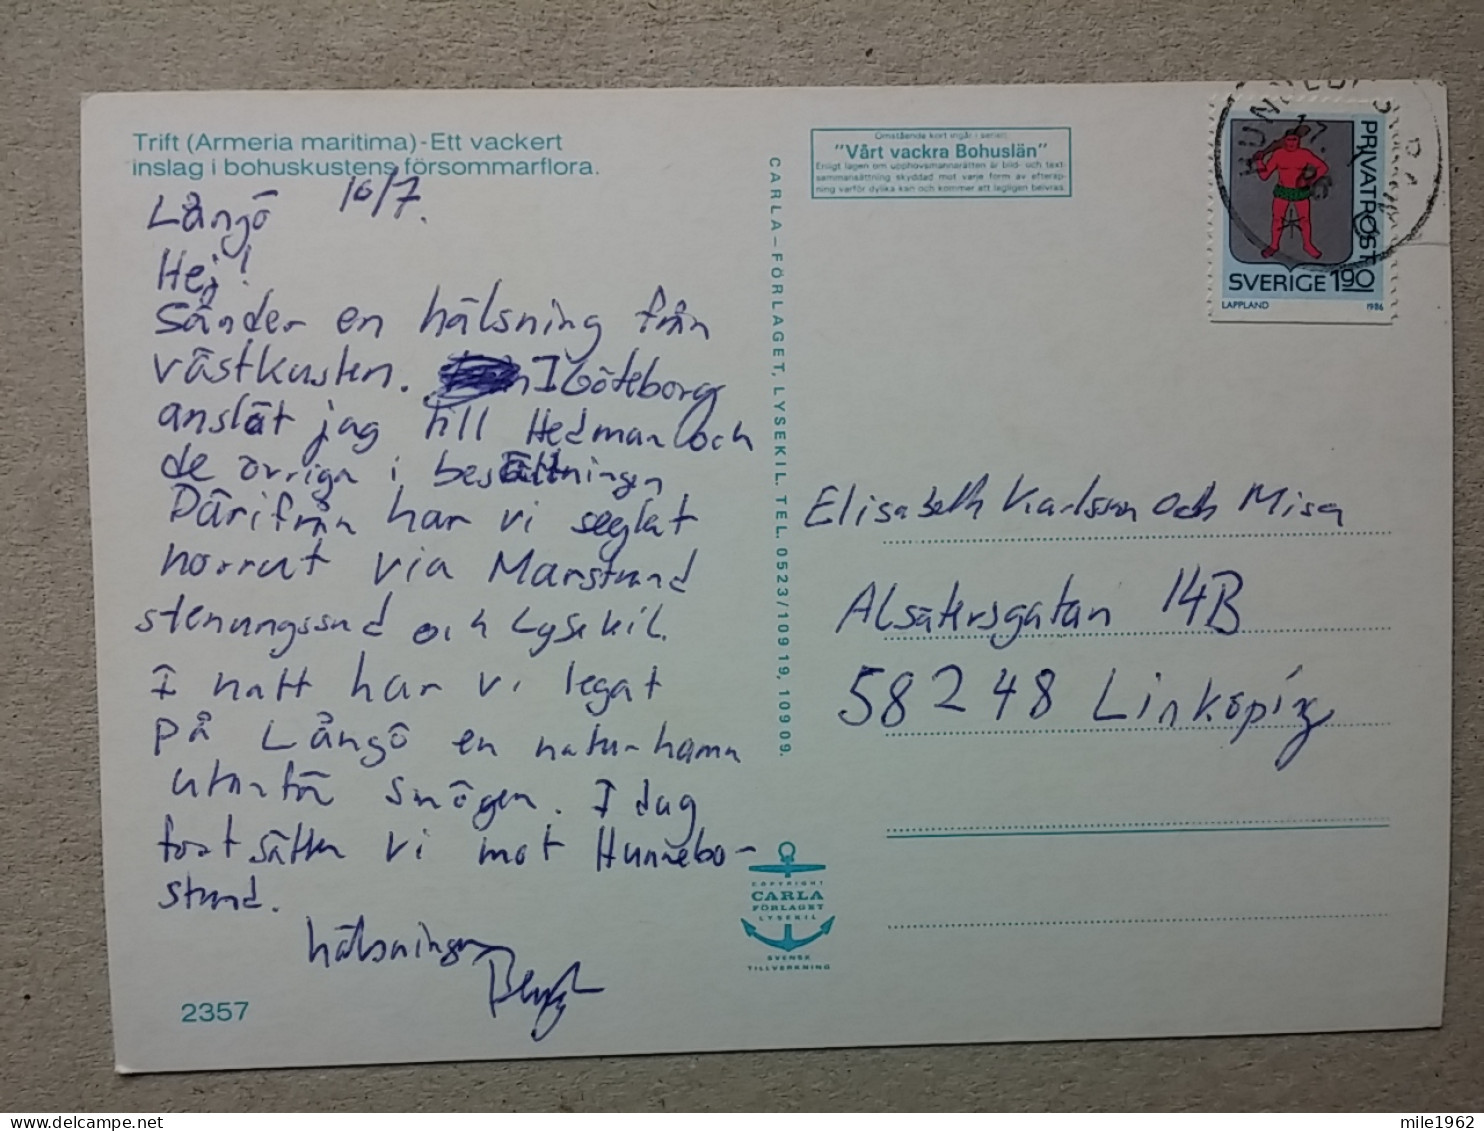 Trift (Armeria maritima)-Ett vackert
inslag i bohuskustens försommarflora.
Långö 16/7.
Hej!
Sänder en hälsning från
västkusten. I Göteborg
anslöt jag till Hedman och
de övriga i besättningen
Därifrån har vi seglat
norrut via Marstrand
stenungssund och Lysekil.
I natt har vi legat
på Långö en naturhamn
utanför Smögen. I dag
fortsätter vi mot Hunnebo-
strand.
hälsningar
2357
CARLA-FÖRLAGET, LYSEKIL. TEL. 0523/109 19, 109 09.
Omstående kort ingår i serien:
"Vårt vackra Bohuslän"
Enligt lagen om upphovsmannarätten är bild- och text-
sammansättning skyddad mot varje form av efterap-
ning varför dylika kan och kommer att lagligen beivras.
PRIVATPOST
SVERIGE 1.90
LAPPLAND 1986
17. 7 86
Elisabeth Karlsson och Misa
Alsätersgatan 14B
58248 Linköping
COPYRIGHT
CARLA
FÖRLAGET
LYSEKIL
SVENSK
TILLVERKNING
mile1962